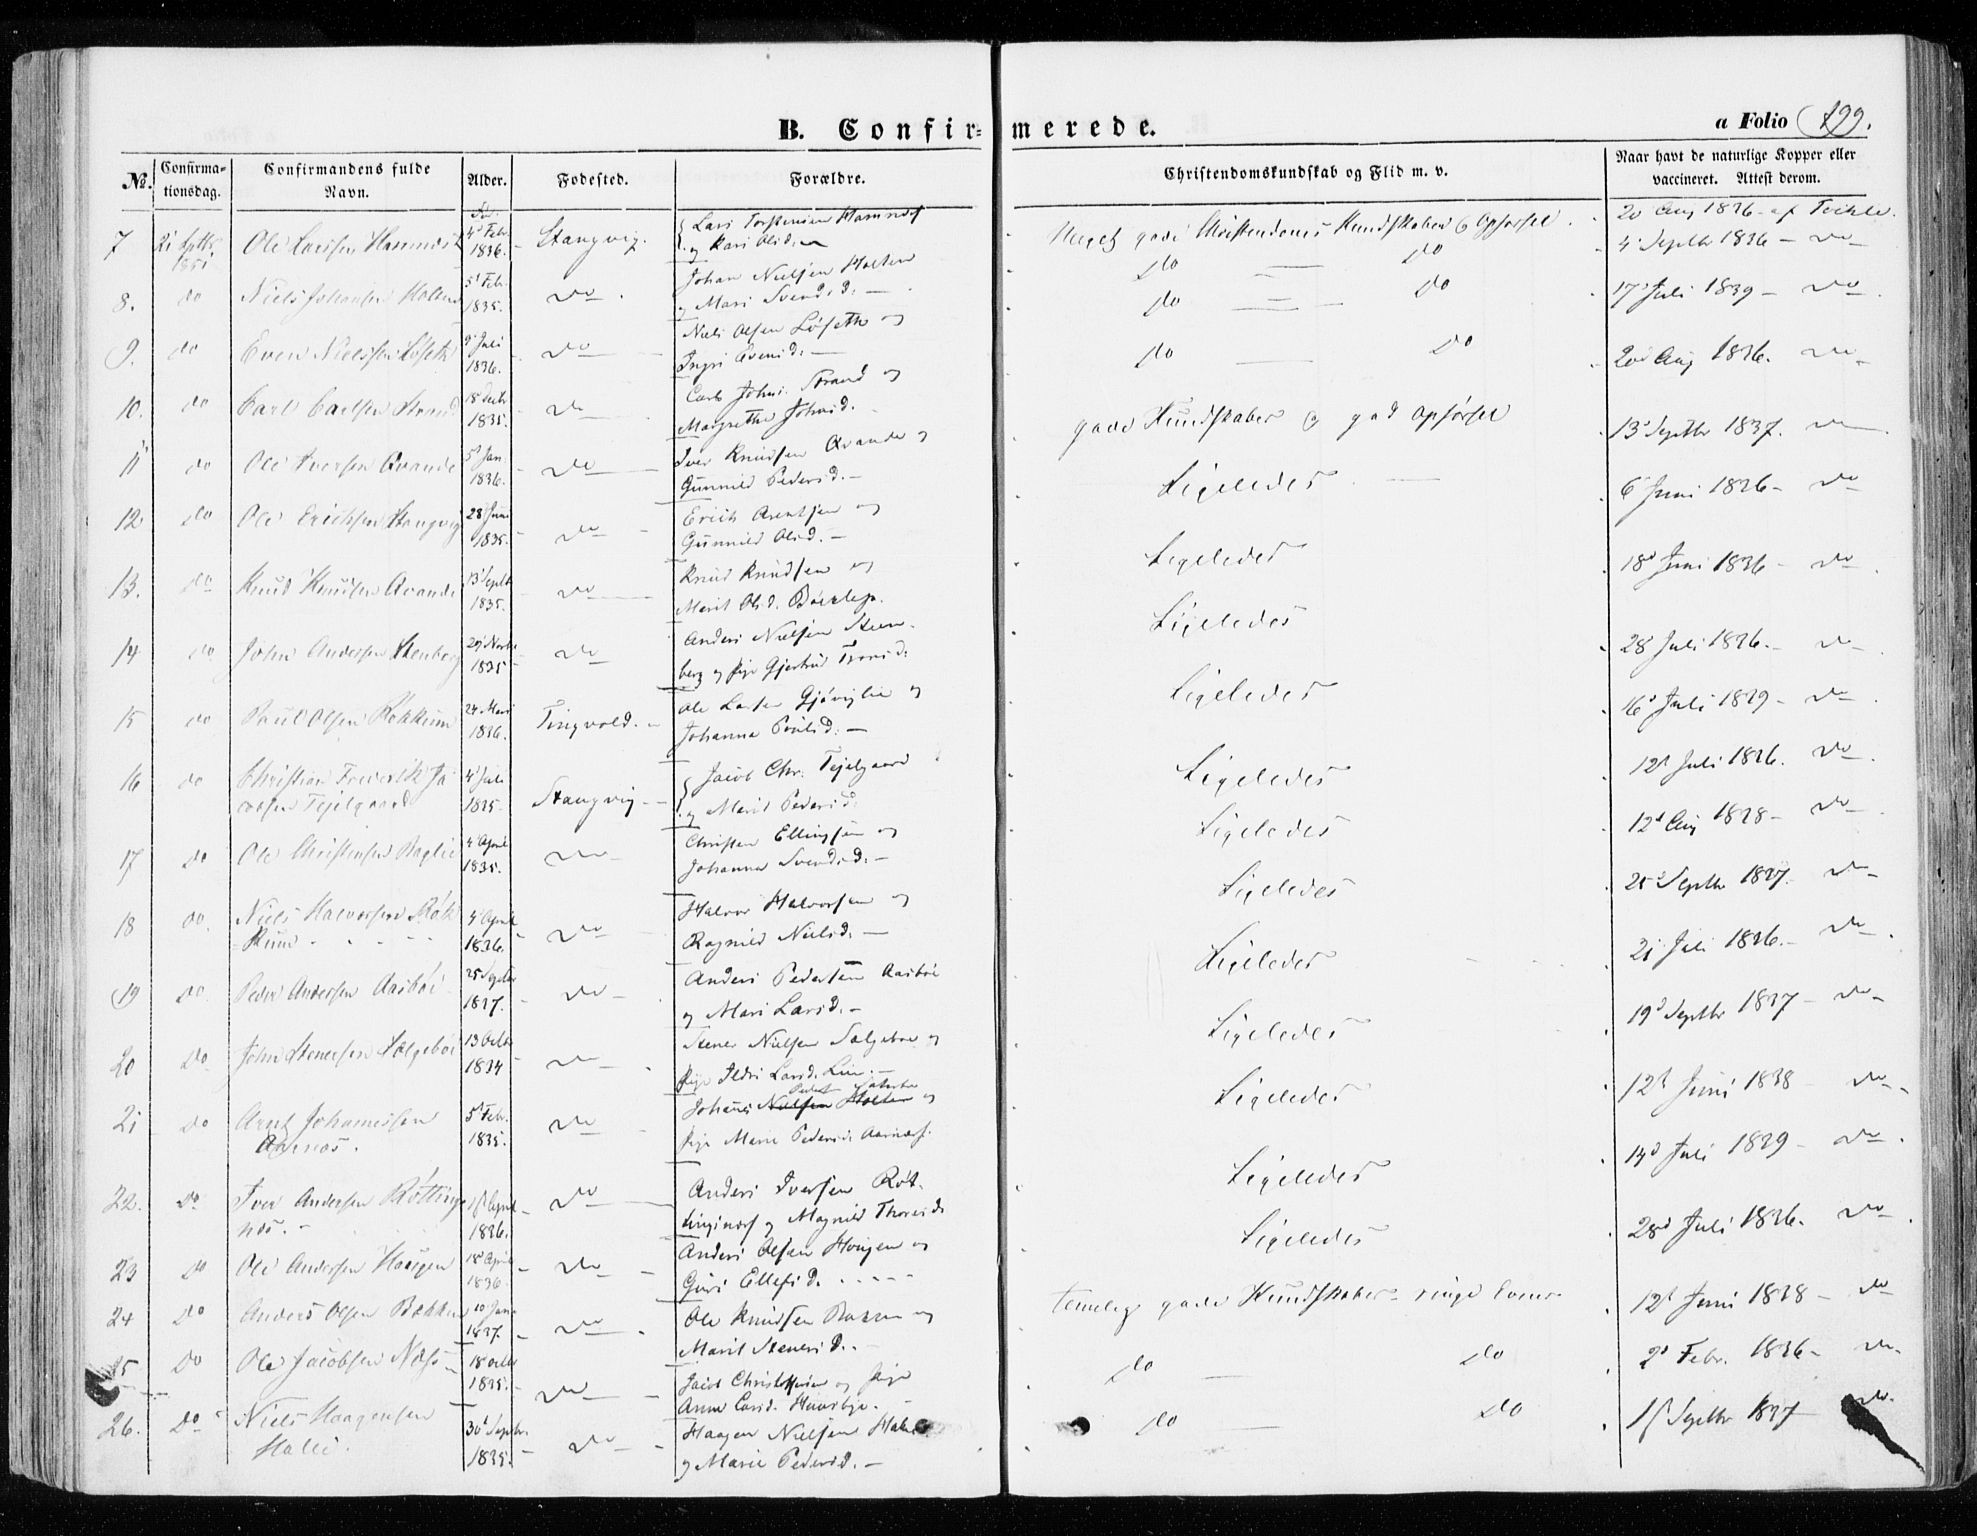 B. Confir=merede.
a Folio 199.
No.
Confirma-
tionsdag.
Confirmandens fulde
Navn.
Alder.
Fodested.
Forældre.
Christendomskundskab og Flid m. v.
Naar havt de naturlige Kopper eller
vaccineret. Attest derom.
7 21 Septbr 1851 Ole Larssen 4d Febr. 1836. Stangvig. Lars Torstensen
og Kari Olsd. Meget gode Christendoms Kundskaber og Opførsel. 20 Aug 1836 af
4 Septbr 1836 – Do
8. do Niels Johansen Holten 5d Feb. 1835. Do. Johan Nielsen Holten
og Mari Svendsd. – Do — Do 17d Juli 1839 – Do
9. do Even Nielssen Løseth 9d Juli 1836. Do Niels Olsen Løseth og
Ingri Evensd. – Do — Do 20d Aug 1836. Do
10. do Carl Carlsen Strand 1835. Do Carl Johns. Strand og
Margrethe Johnsd. gode Kundskaber og god Opførsel 13d Septbr 1837. Do
11 do Ole Iversen Qvande 5d Jan. 1836. Do Iver Knudsen Qvande og
Gunnild Pedersd. – Ligeledes 6 Juni 1836 – Do
12 do Ole Erichsen Stangvig 28 Juni 1835. Do Erich Arentsen og
Gunnild Olsd. – Ligeledes 18d Juni 1836 – Do
13. do Knud Knudsen Qvande 13d Septbr 1835. Do Knud Knudsen og
Marit Olsd. Ligeledes
14 do John Andersen Stenberg 29d Novbr 1835 Do Anders Nielsen Sten-
berg og Pige Gjertrud Ligeledes 28 Juli 1836. – Do
15 do Poul Olsen Røkkum 24 Mars 1836. Tingvold. – Ole Larsen og
Johanna Poulsd. – Ligeledes 16d Juli 1839 – Do
16 do Christian Frederik Ja-
cobsen Tejelgaard 4d Juli 1835 Stangvig – Jacob Chr. Tejelgaard
og Marit Pedersd. Ligeledes 12d Juli 1836. Do
17 do Ole Christensen 4d April 1835. Do Christen Ellingsen og
Johanna Svendsd. – Ligeledes 12d Aug 1838 – Do
18 do. Niels Halvorsen Røk-
kum 4d April 1836. Do Halvor Halvorsen og
Ragnild Nielsd. – Ligeledes 25d Septbr 1837. Do
19 Do. Peder Andersen Aasbøe 25 Septbr 1837. Do Anders Pedersen Aasbøe
og Mari Larsd. – Ligeledes 21 Juli 1836. – Do
20 Do John Stenersen Sælgebøe 13 Octbr 1834 Do Stener Nielsen Salgebøe og
Pige Ildri Larsd. Lien. – Ligeledes 19d Septbr 1837 – Do
21 Do Arnt Johannessen
Aarnæs. 5d Feb. 1835. Do Johans Nielsen Holten og
Pige Marie Pedersd. Aarnæs. Ligeledes 12d Juni 1838 Do
22. Do Iver Andersen Røttings-
næs. – April 1836. Do Anders Iversen Røt-
tingsnæs og Magnild Thoresd. Ligeledes 14d Juli 1839 – Do
23 Do Ole Andersen Haugen 18d April 1836 Do Anders Olsen Haugen og
Guri Ellefsd. Ligeledes 28d Juli 1836. Do
24 Do Anders Olsen Bakken 10 Janr 1837. Do Ole Knudsen Bakken og
Marit Stenersd. – temelig gode Kundskaber – ringe Evner 12d Juni 1838 – Do
25 Do Ole Jacobsen Næss 18 Octbr 1835. Do Jacob Christophersen og Pige
Anne Larsd. Do — Do 2d Febr. 1836 – Do
26. Do Niels Haagensen
Halle. 30d Septbr. 1835. Do Haagen Nielsen Halle
og Marie Pedersd. – Do — Do Septbr 1837 Do